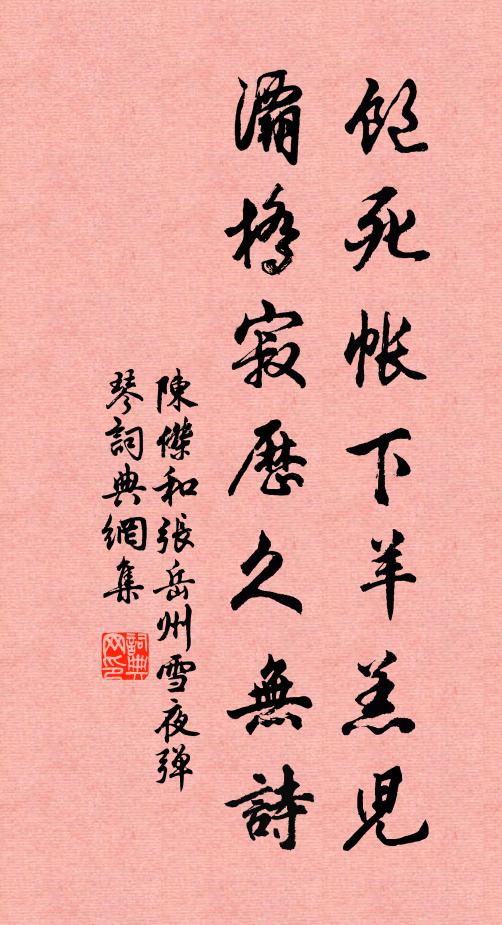 飽死帳下羊羔兒
灞橋寂歷久無詩
陳傑和張岳州雪夜弹
琴詞典網集
詞典
网印